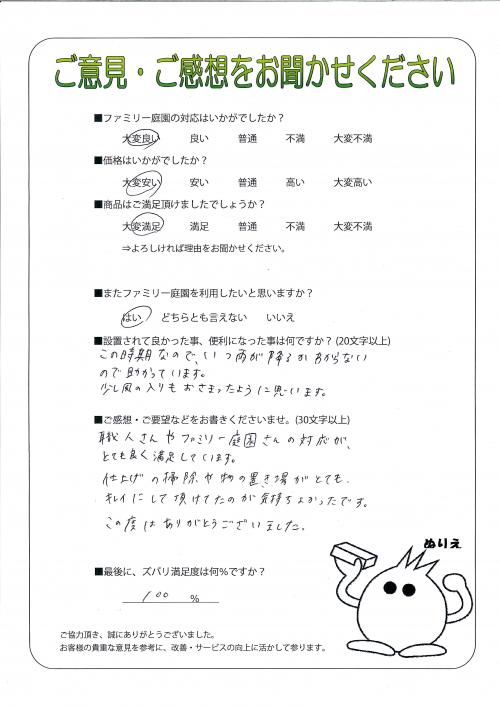 ご意見・ご感想をお聞かせください
■ファミリー庭園の対応はいかがでしたか？
大変良い 良い 普通 不満 大変不満
■価格はいかがでしたか？
大変安い 安い 普通 高い 大変高い
■商品はご満足頂けましたでしょうか？
大変満足 満足 普通 不満 大変不満
⇒よろしければ理由をお聞かせください。
■またファミリー庭園を利用したいと思いますか？
はい どちらとも言えない いいえ
■設置されて良かった事、便利になった事は何ですか？(20文字以上)
この時期なので、いつ雨が降るかわからない
ので助かっています。
少し風の入りもおさまったように思います。
■ご感想・ご要望などをお書きくださいませ。(30文字以上)
職人さんやファミリー庭園さんの対応が、
とても良く満足しています。
仕上げの掃除や物の置き場がとても
キレイにして頂けてたのが気持ちよかったです。
この度はありがとうございました。
ぬりえ
■最後に、ズバリ満足度は何％ですか？
100 %
ご協力頂き、誠にありがとうございました。
お客様の貴重な意見を参考に、改善・サービスの向上に活かして参ります。